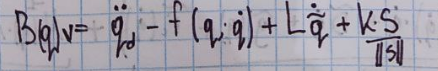 B(q)v = q̈_d - f(q·q̇) + L q̃̇ + k·S/‖S‖